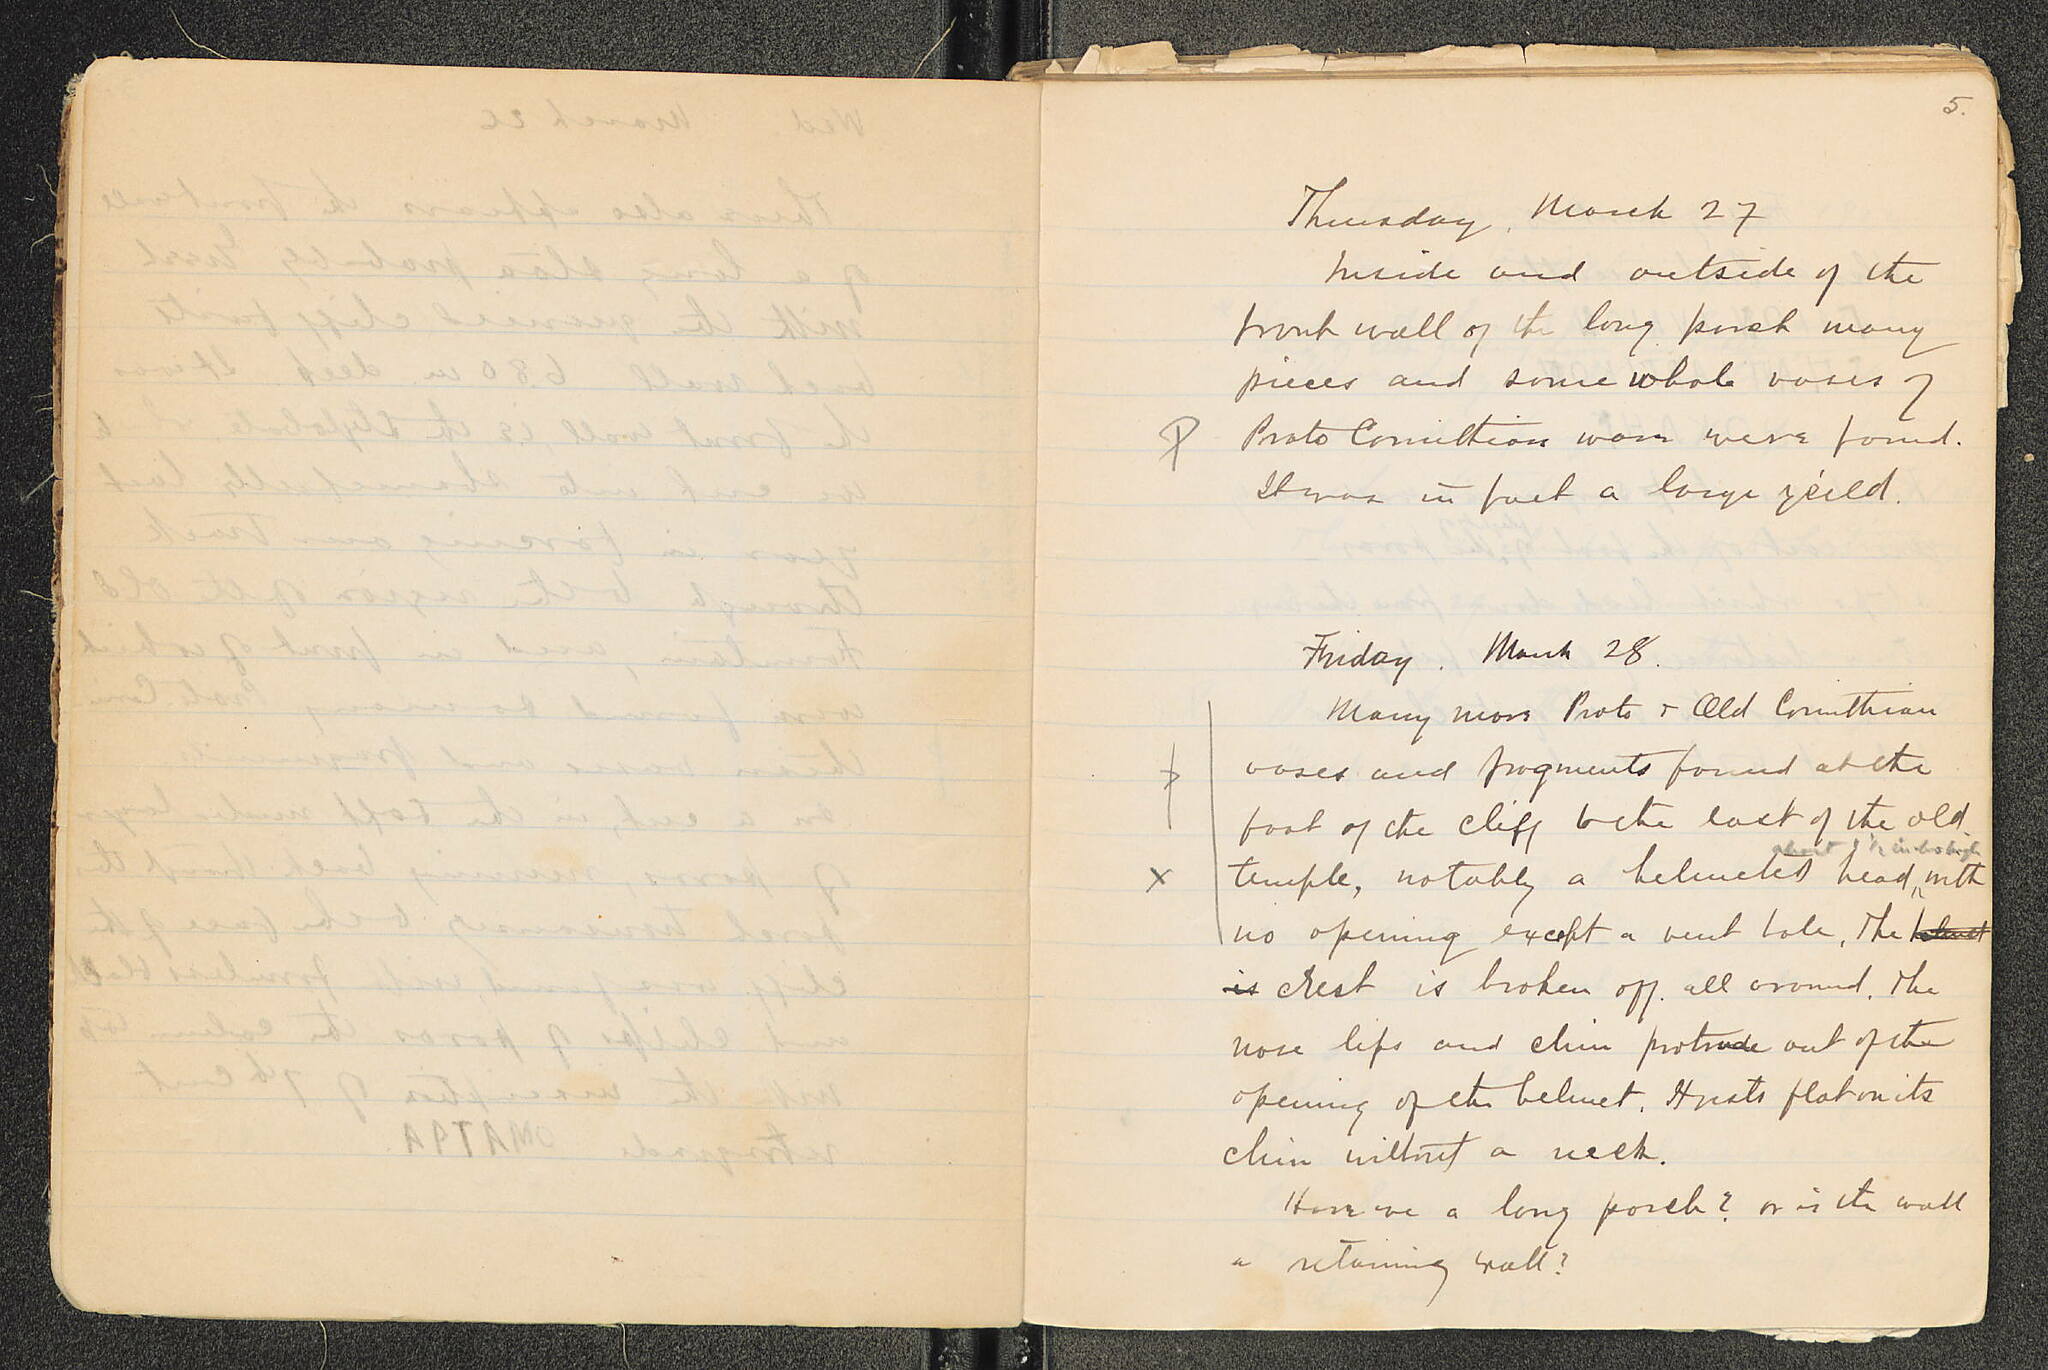 5.
Thursday, March 27
Inside and outside of the
front wall of the long porch many
pieces and some whole vases of
Proto Corinthian ware were found.
It was in fact a large yield.
Friday. March 28.
Many more Proto + Old Corinthian
vases and fragments found at the
foot of the cliff to the east of the old
about 1½ inches high
temple, notably a helmeted head, with
no opening except a vent hole. The helmet
is crest is broken off all around. The
nose lips and chin protrude out of the
opening of the helmet. It rests flat on its
chin without a neck.
Have we a long porch? or is the wall
a retaining wall?